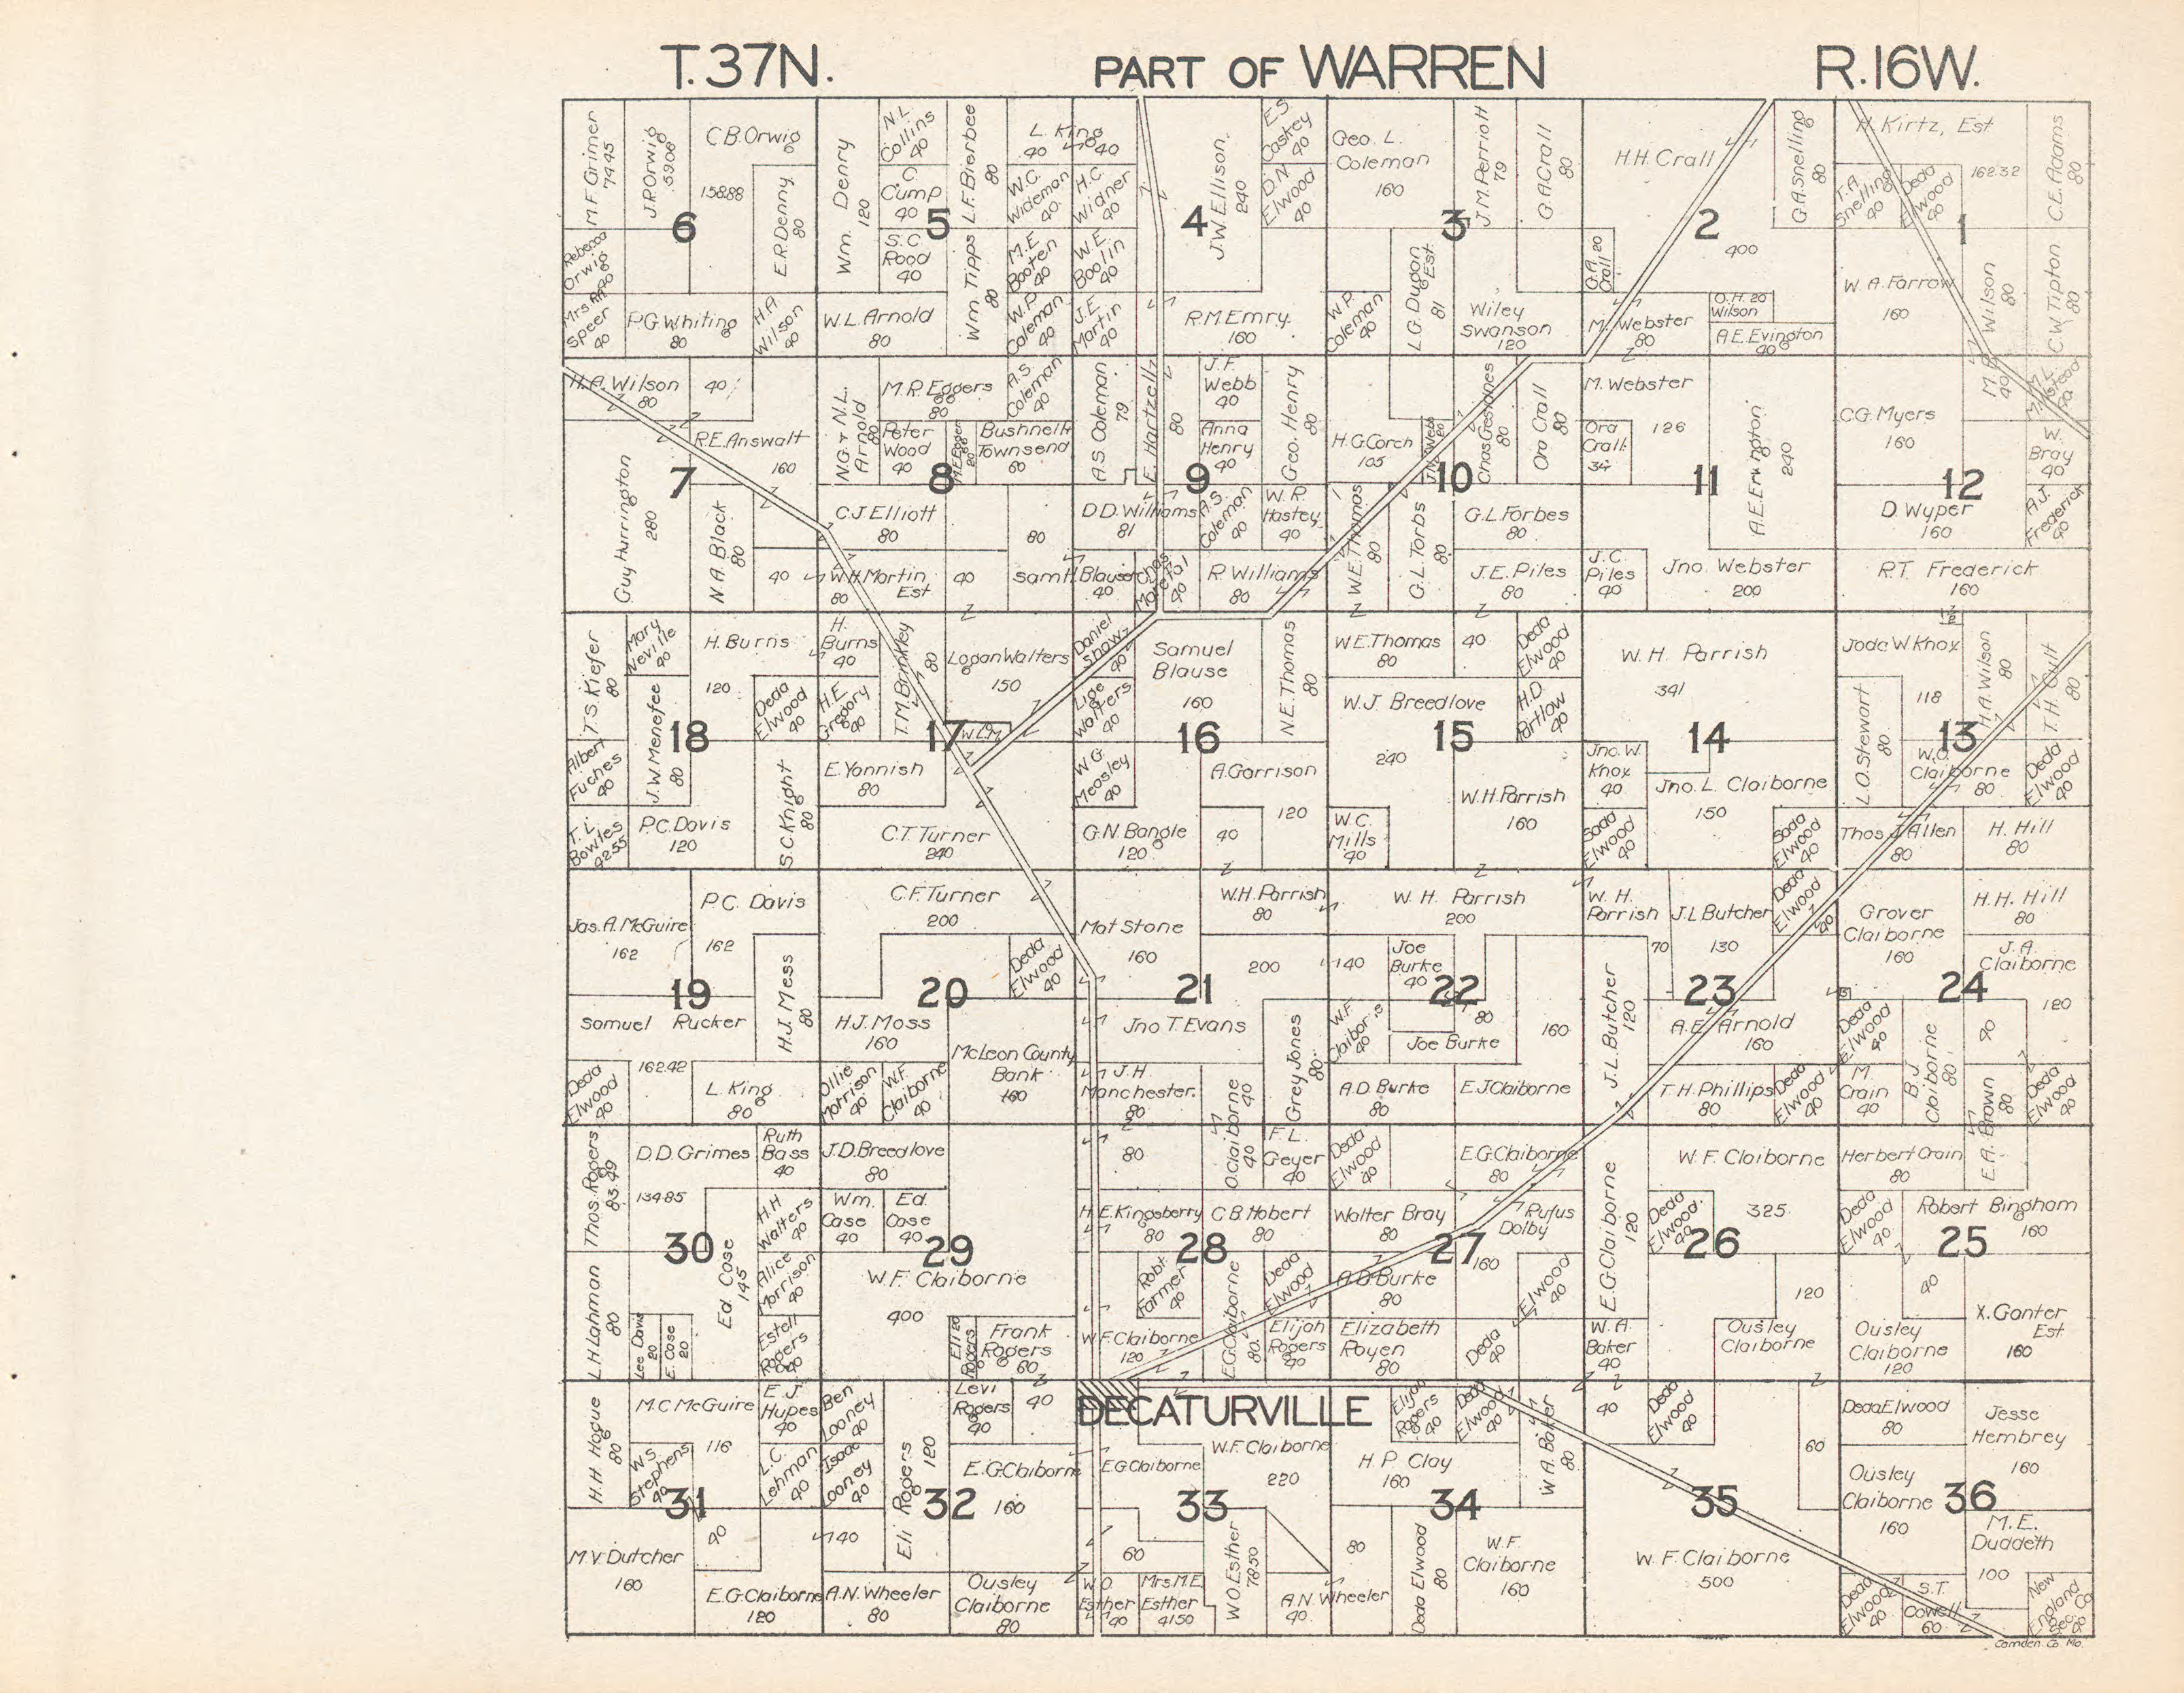 T. 37N. PART OF WARREN R. 16W.
M.F. Grimer
74.45
J.P. Orwig
59.06
C.B. Orwig
158.88
E.R. Denny
80
Rebecca
Orwig
40
Speer
40
P.G. Whiting
80
H.A.
Wilson
40
6
Wm. Denny
120
N.L.
Collins
40
C.
Cump
40
S.C.
Rood
40
L.F. Bierbee
80
Wm. Tipps
80
L. King
40
40
W.C.
Wideman
40
H.C.
Widner
40
M.E.
Booten
40
W.E.
Boolin
40
W.L. Arnold
80
W.P.
Coleman
40
J.E.
Martin
40
5
J.W. Ellison
240
E.S.
Caskey
40
D.N.
Elwood
40
R.M. Emry
160
4
Geo. L.
Coleman
160
J.M. Perriott
79
O.A. Crall
80
L.G. Dugan
Est.
81
W.P.
Coleman
40
Wiley
Swanson
120
3
H.H. Crall
400
G.A. Snelling
80
O.A.
Crall 20
M. Webster
80
O.H. 20
Wilson
A.E. Evington
40
2
H. Kirtz, Est
162.32
T.A.
Snelling
40
Deda
Elwood
40
C.E. Adams
80
W.A. Farrow
160
Wilson
C.W. Tipton
80
1
H.A. Wilson
80
40
R.E. Answalt
160
Guy Hurrington
280
N.A. Black
80
40
7
N.G. & N.L.
Arnold
80
M.R. Eggers
80
A.S.
Coleman
40
Peter
Wood
40
M.E. Egger
20
Bushnell
Townsend
60
C.J. Elliott
80
80
W.H. Martin
Est
80
40
Sam H. Blauser
40
8
A.S. Coleman
79
E. Hartzell
80
J.F.
Webb
40
Anna
Henry
40
Geo. Henry
80
D.D. Williams
81
A.S.
Coleman
40
W.R.
Hastey
40
Chas
40
R. Williams
80
9
H.G. Corch
105
20
80
Ora Crall
80
W.E. Thomas
80
G.L. Torbs
80
G.L. Forbes
80
J.E. Piles
80
10
M. Webster
126
Ora
Crall
34
A.E. Evington
240
J.C.
Piles
40
Jno. Webster
200
11
C.G. Myers
160
W.
Bray
40
D. Wyper
160
A.J.
Frederick
40
R.T. Frederick
160
12
T.S. Kiefer
80
Mary
Neville
40
H. Burns
120
J.W. Menefee
80
Deda
Elwood
40
Albert
Fuches
40
T.L.
Bowles
42.55
P.C. Davis
120
S.C. Knight
80
18
H.
Burns
40
H.E.
Gregory
40
T.M. Brinkley
80
Logan Walters
150
W.L.M.
E. Yannish
80
C.T. Turner
240
17
Daniel
Shaw
40
Lige
Walters
40
Samuel
Blause
160
N.E. Thomas
80
W.G.
Measley
40
A. Garrison
120
G.N. Bangle
120
40
16
W.E. Thomas
80
40
Deda
Elwood
40
W.J. Breedlove
240
H.D.
Partlow
40
W.C.
Mills
40
W.H. Parrish
160
15
W.H. Parrish
341
Jno. W.
Knox
40
Jno. L. Claiborne
150
Sada
Elwood
40
Sada
Elwood
40
14
Jode W. Knox
118
H.A. Wilson
80
T.H. Cult
80
L.O. Stewart
80
W.O.
Claiborne
80
Deda
Elwood
40
Thos. J. Allen
80
H. Hill
80
13
Jas. A. McGuire
162
P.C. Davis
162
H.J. Mess
80
Samuel Rucker
162.42
Deda
Elwood
40
L. King
80
19
C.F. Turner
200
Deda
Elwood
40
H.J. Moss
160
McLeon County
Bank
160
Ollie
Morrison
40
W.F.
Claiborne
40
20
Mat Stone
160
W.H. Parrish
80
200
Jno T. Evans
Grey Jones
80
J.H.
Manchester
80
O. Claiborne
40
40
21
W. H. Parrish
200
140
Joe
Burke
40
W.F.
Claiborne
40
80
Joe Burke
160
A.D. Burke
80
E.J. Claiborne
22
W. H.
Parrish
70
J.L. Butcher
130
Deda
Elwood
40
J.L. Butcher
120
A.E. Arnold
160
T.H. Phillips
80
Deda
Elwood
40
23
Grover
Claiborne
160
H.H. Hill
80
J.A.
Claiborne
120
Deda
Elwood
40
B.J.
Claiborne
80
40
M.
Crain
40
E.A. Brown
80
Deda
Elwood
40
24
Thos. Rogers
83.49
D.D. Grimes
134.85
Ruth
Bass
40
H.H.
Walters
40
Alice
Morrison
40
Estell
Rogers
40
Ed. Case
145
L.H. Lahman
80
Lee Davis
20
E. Case
20
30
J.D. Breedlove
80
Wm.
Case
40
Ed.
Case
40
W.F. Claiborne
400
Eli
Rogers
20
Frank
Rogers
60
29
80
F.L.
Geyer
40
H.E. Kingsberry
80
C.B. Hobert
80
Robt
Farmer
40
E.G. Claiborne
80
Deda
Elwood
40
W.F. Claiborne
120
Elijah
Rogers
40
28
Deda
Elwood
40
E.G. Claiborne
80
Walter Bray
80
Rufus
Dolby
160
A.D. Burke
80
Elizabeth
Royen
80
Elwood
40
Deda
40
27
E.G. Claiborne
120
W.F. Claiborne
325
Deda
Elwood
40
120
W.A.
Baker
40
Ousley
Claiborne
26
Herbert Crain
80
Deda
Elwood
40
Robert Bingham
160
40
Ousley
Claiborne
120
X. Ganter
Est
160
25
H.H. Hogue
80
M.C. McGuire
116
W.S.
Stephens
40
E.J.
Hupes
40
L.C.
Lehman
40
M.V. Dutcher
160
40
E.G. Claiborne
120
31
Ben
Looney
40
Isaac
Looney
40
Eli Rogers
120
Levi
Rogers
40
40
E.G. Claiborne
160
40
A.N. Wheeler
80
Ousley
Claiborne
80
32
DECATURVILLE
E.G. Claiborne
W.F. Claiborne
220
60
W.O. Esther
78.50
W.O.
Esther
40
Mrs. M.E.
Esther
41.50
A.N. Wheeler
40
33
Elijah
Rogers
40
Deda
Elwood
40
H.P. Clay
160
W.A. Baker
80
80
Deda Elwood
80
W.F.
Claiborne
160
34
40
Deda
Elwood
40
60
W.F. Claiborne
500
35
Deda Elwood
80
Jesse
Hembrey
160
Ousley
Claiborne
160
M.E.
Duddeth
100
Deda
Elwood
40
S.T.
Cowell
60
New
England
Sec. Co
40
36
Camden Co. Mo.